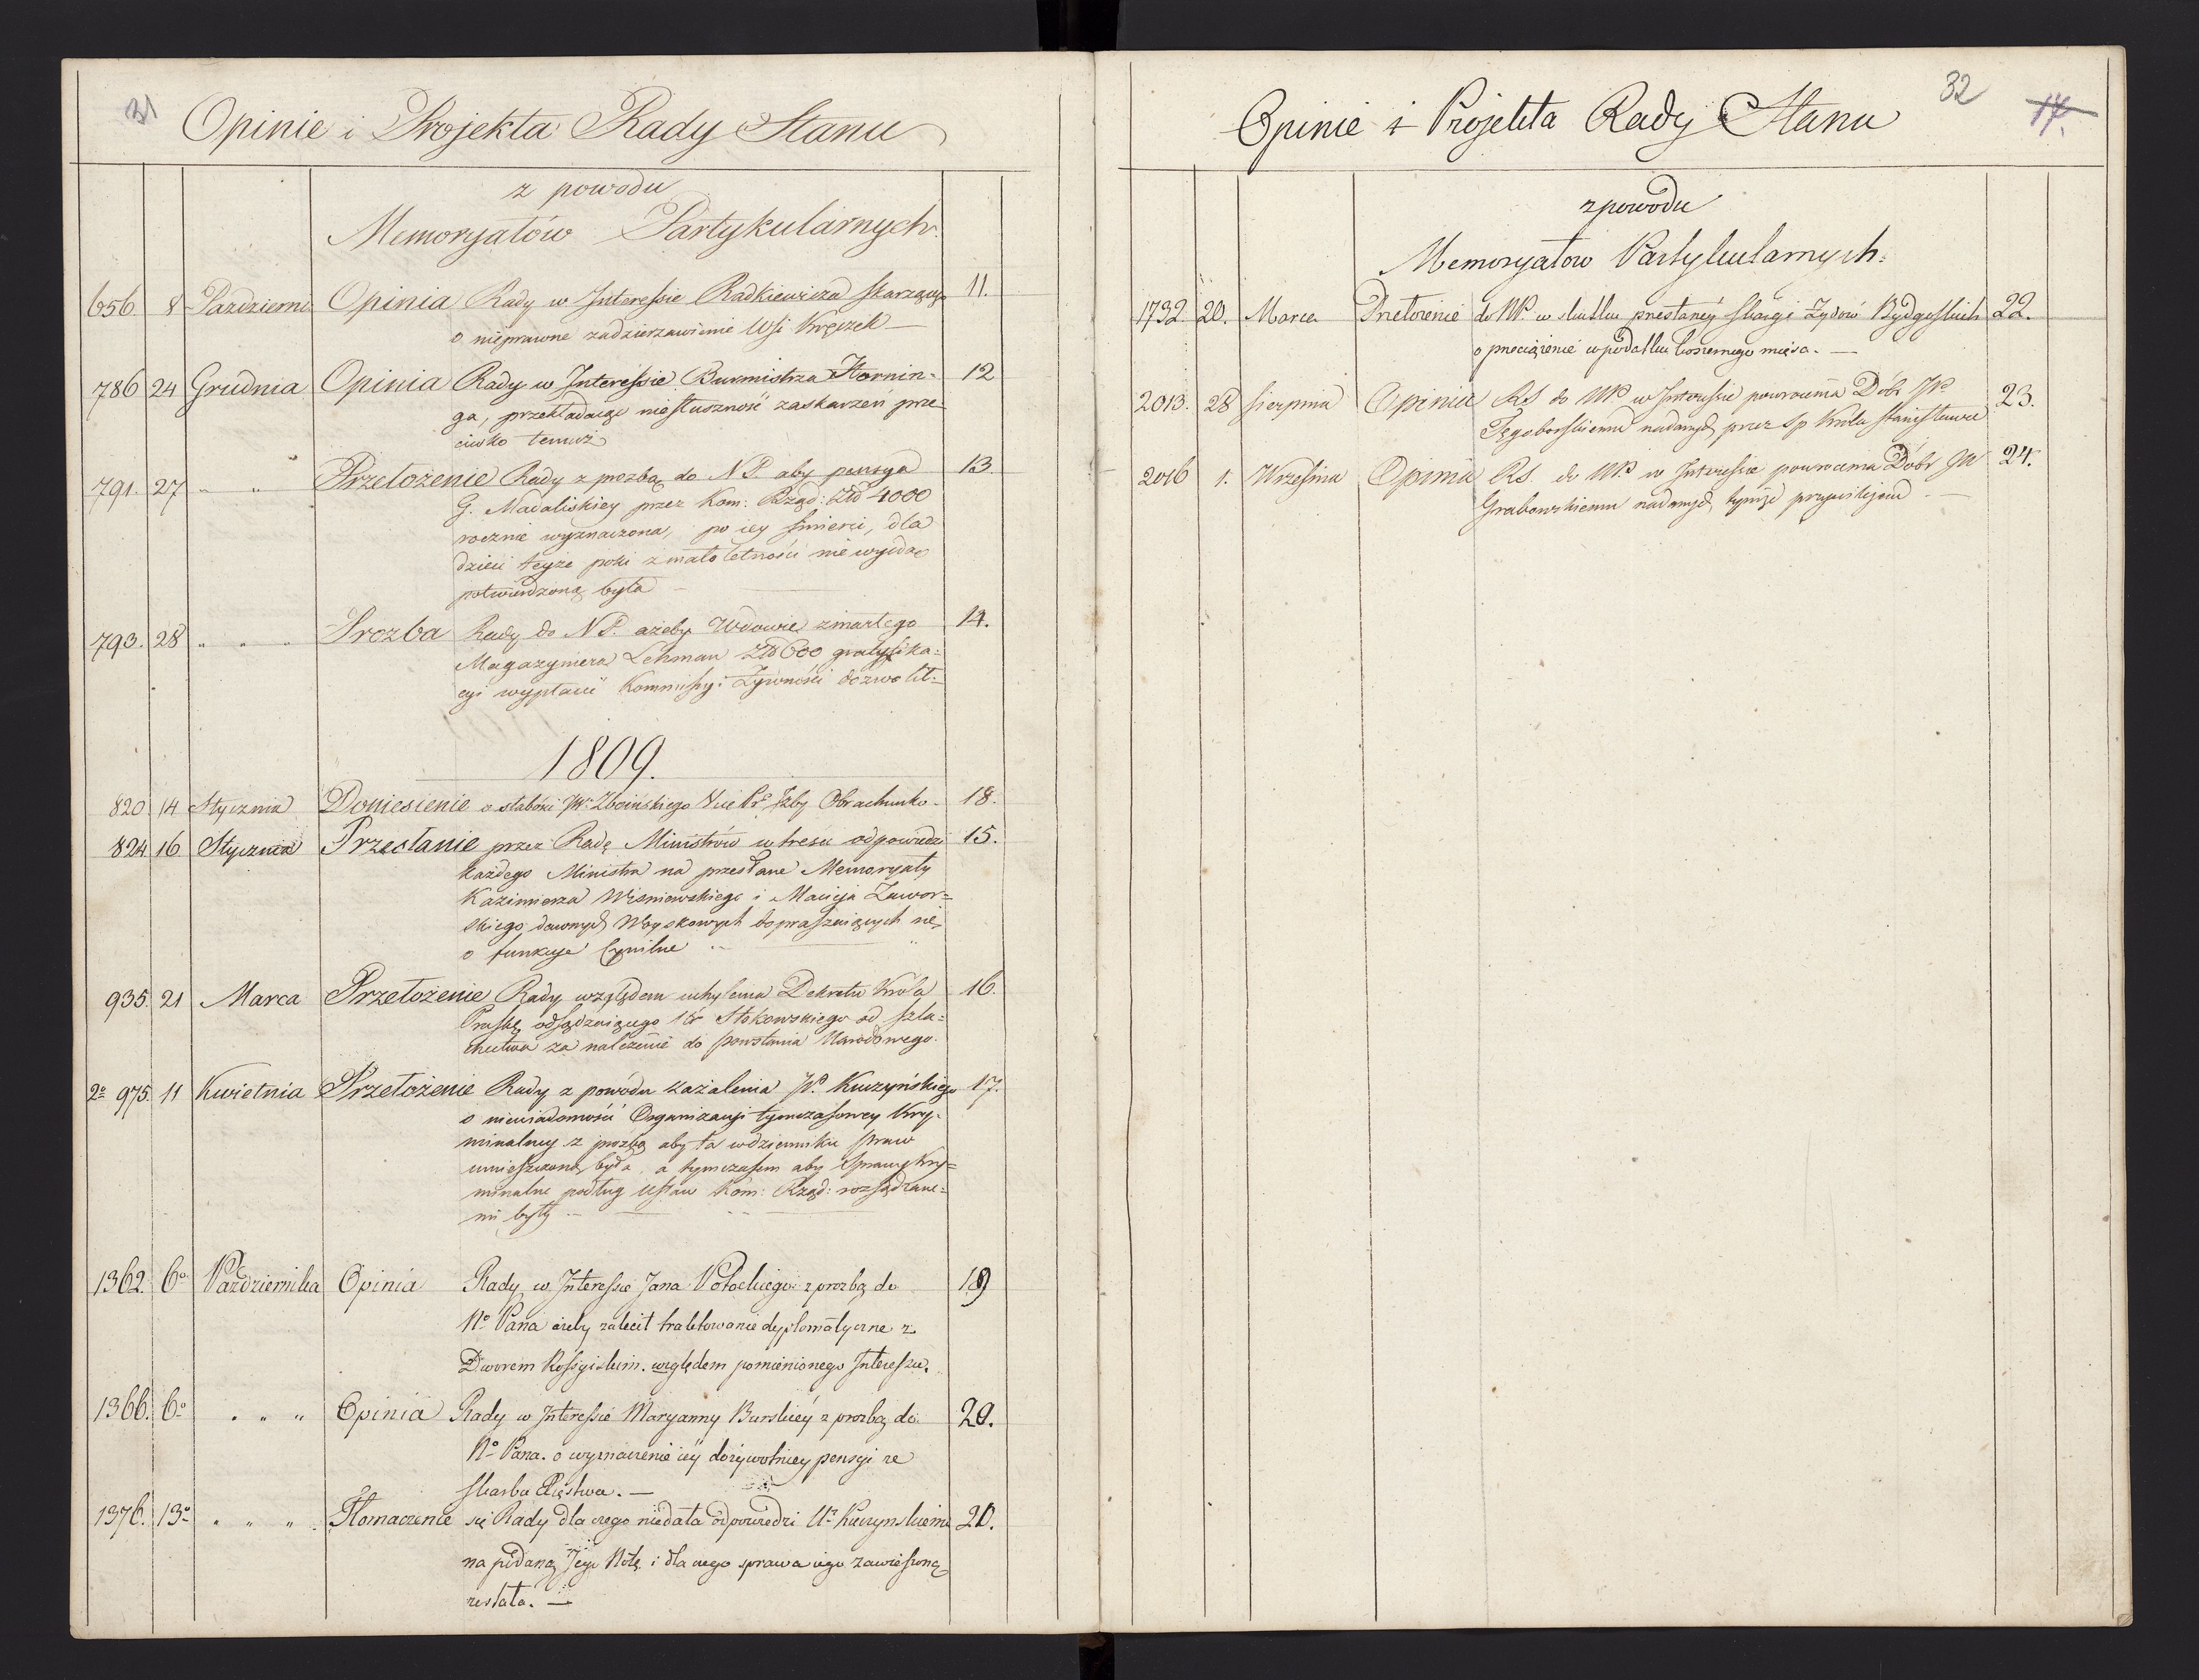 31
Opinie i Projekta Rady Stanu
z powodu
Memoryałów Partykularnych.
656 8 Październ. Opinia Rady w Interessie Radkiewicza skarzącego 11.
o nieprawne zadzierzawienie Wsi Kręczek —
786 24 Grudnia Opinia Rady w Interessie Burmistrza Hornin= 12
ga, przekładaiąc niesłuszność zaskarzen prze
ciwko temuż
791. 27 " " Przełożenie Rady z prozbą do N P. aby pensya 13.
G. Madaliskiey przez Kom: Rząd: Złł 4000
rocznie wyznaczona, po iey śmierci, dla
dzieci teyże poki z małoletności nie wyidą
potwierdzoną była —
793. 28 " " " Prozba Rady do N P. ażeby Wdowie zmarłego 14.
Magazyniera Lehman Złł 600 gratyfika=
cyi wypłacić Kommissyi Żywności dozwolił.—
1809.
820. 14 Stycznia Doniesienie o słabości JW. Zboińskiego Vice Pr. Izby Obrachunko. 18.
824 16 Stycznia Przesłanie przez Radę Ministrów w tresci odpowiedzi 15.
każdego Ministra na przesłane Memoryały
Kazimierza Wisniewskiego i Macieja Zawor=
skiego dawnych Woyskowych dopraszaiących się
o funkcye Cywilne
935. 21 Marca Przełożenie Rady względem uchylenia Dekretu Króla 16.
Pruskę odsądzaiącego Ur Stokowskiego od szla=
chectwa za należenie do powstania Narodowego.
2o 975. 11 Kwietnia Przełożenie Rady z powodu zażalenia JP. Kuczyńskiego 17.
o niewiadomości Organizacyi tymczasowey Kry-
minalney z prozbą aby ta w dzienniku praw
umieszczoną była, a tymczasem aby sprawy kry=
minalne podług Ustaw Kom: Rząd: rozsądzane=
mi były —
1362. 6o Października Opinia Rady w Interessie Jana Potockiego z prozbą do 19
No Pana ażeby zalecił traktowanie dyplomatyczne z
Dworem Rossyiskim. względem pomienionego Interessu.
1366. 6o . " " Opinia Rady w Interessie Maryanny Burskiey z prozbą do 20.
No Pana. o wyznaczenie iey dożywotniey pensyi ze
skarbu Xięstwa. —
1376. 13o " " " Tłomaczenie się Rady dla czego niedała odpowiedzi Ur Kuczynskiemu 21.
na podaną Jego Notę i dla czego sprawa iego zawieszoną
została. —
32
14.
Opinie i Projekta Rady Stanu
z powodu
Memoryałow Partykularnych.
1732. 20. Marca Przełożenie do NP. w skutku przesłaney skargi Żydów Bydgoskich 22.
o przeciążenie w podatku koszernego mięsa. —
2013. 28 Sierpnia Opinia RS do NP. w Interessie powrócenia Dóbr JP. 23.
Tęgoborskiemu nadanych przez śp Króla Stanisława
2016 1. Września Opinia RS. do NP. w Interessie powrocenia Dóbr JW 24.
Grabowskiemu nadanych tymże przywilejem. —